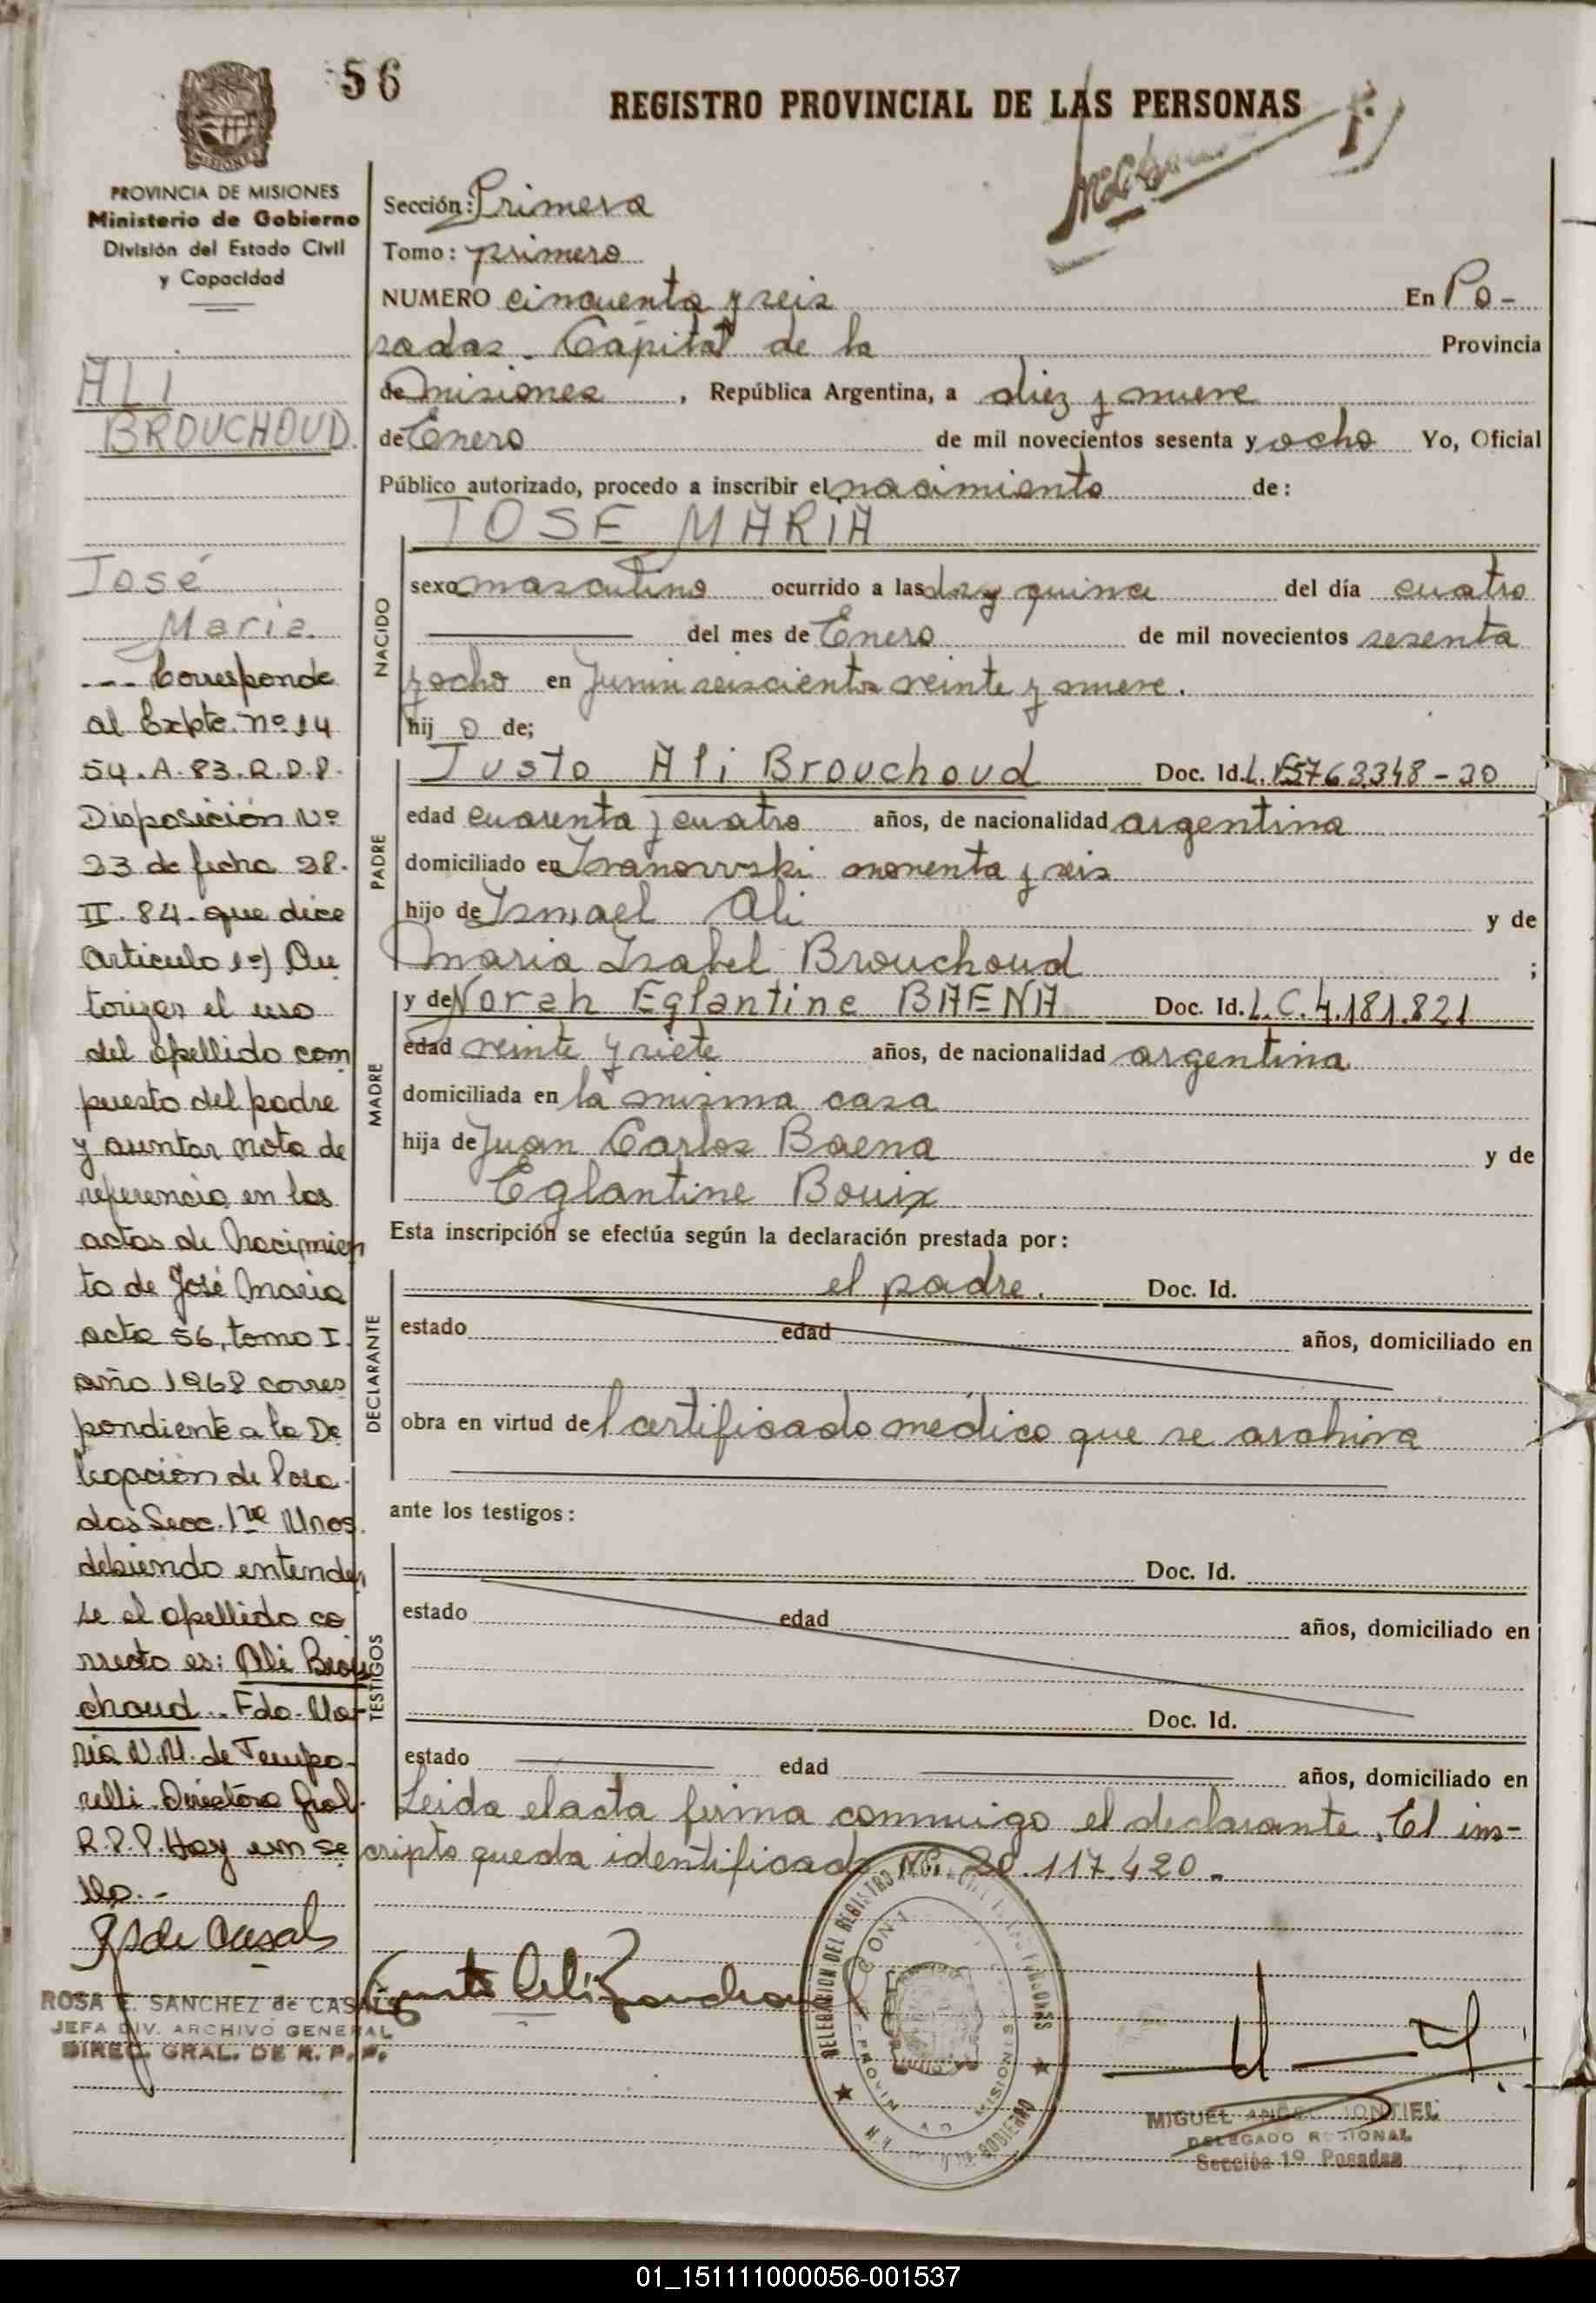 56
REGISTRO PROVINCIAL DE LAS PERSONAS
MISIONES
PROVINCIA DE MISIONES
Ministerio de Gobierno
División del Estado Civil
y Capacidad
ALI
BROUCHOUD.
José
Maria.
--- Corresponde
al Expte. nº 14
54. A. 83. R.D.P.
Disposición Nº
23 de fecha 28.
II. 84. que dice
Articulo 1º) Au
torizar el uso
del apellido com
puesto del padre
y asentar nota de
referencia en las
actas de Nacimien
to de José Maria
acta 56, tomo I.
año 1968 corres
pondiente a la De
legación de Posa
das Secc. 1ra Mnes.
debiendo entender
se el apellido co
rrecto es: Ali Brou
choud.. Fdo. Ma
ria N.M. de Tempo
relli. Directora Gral.
R.P.P. Hoy un se
llo.-
R S de Casals
ROSA E. SANCHEZ de CASALS
JEFA DIV. ARCHIVO GENERAL
DIREC. GRAL. DE R. P. P.
Sección: Primera
Tomo: primero
NUMERO cincuenta y seis En Po-
sadas. Capital de la Provincia
de Misiones, República Argentina, a diez y nueve
de Enero de mil novecientos sesenta y ocho Yo, Oficial
Público autorizado, procedo a inscribir el nacimiento de:
JOSE MARIA
NACIDO
sexo masculino ocurrido a las dos y quince del día cuatro
del mes de Enero de mil novecientos sesenta
y ocho en Junin seiscientos veinte y nueve.
hij o de;
PADRE
Justo Ali Brouchoud Doc. Id. 5763348-20
edad cuarenta y cuatro años, de nacionalidad argentina
domiciliado en Ivanowski noventa y seis
hijo de Ismael Ali y de
Maria Isabel Brouchoud ;
MADRE
y de Norah Eglantine BAENA Doc. Id. L.C. 4.181.821
edad veinte y siete años, de nacionalidad argentina
domiciliada en la misma casa
hija de Juan Carlos Baena y de
Eglantine Bouix
Esta inscripción se efectúa según la declaración prestada por:
DECLARANTE
el padre. Doc. Id.
estado edad años, domiciliado en
obra en virtud del certificado medico que se archiva
ante los testigos:
TESTIGOS
Doc. Id.
estado edad años, domiciliado en
Doc. Id.
estado edad años, domiciliado en
Leida el acta firma conmigo el declarante. El ins-
cripto queda identificado Nº. 20.117.420.-
Justo Ali Brouchoud
DELEGACION DEL REGISTRO
MISIONES
GOBIERNO
MIGUEL ANGEL MONTIEL
DELEGADO REGIONAL
Sección 1º Posadas
01_151111000056-001537